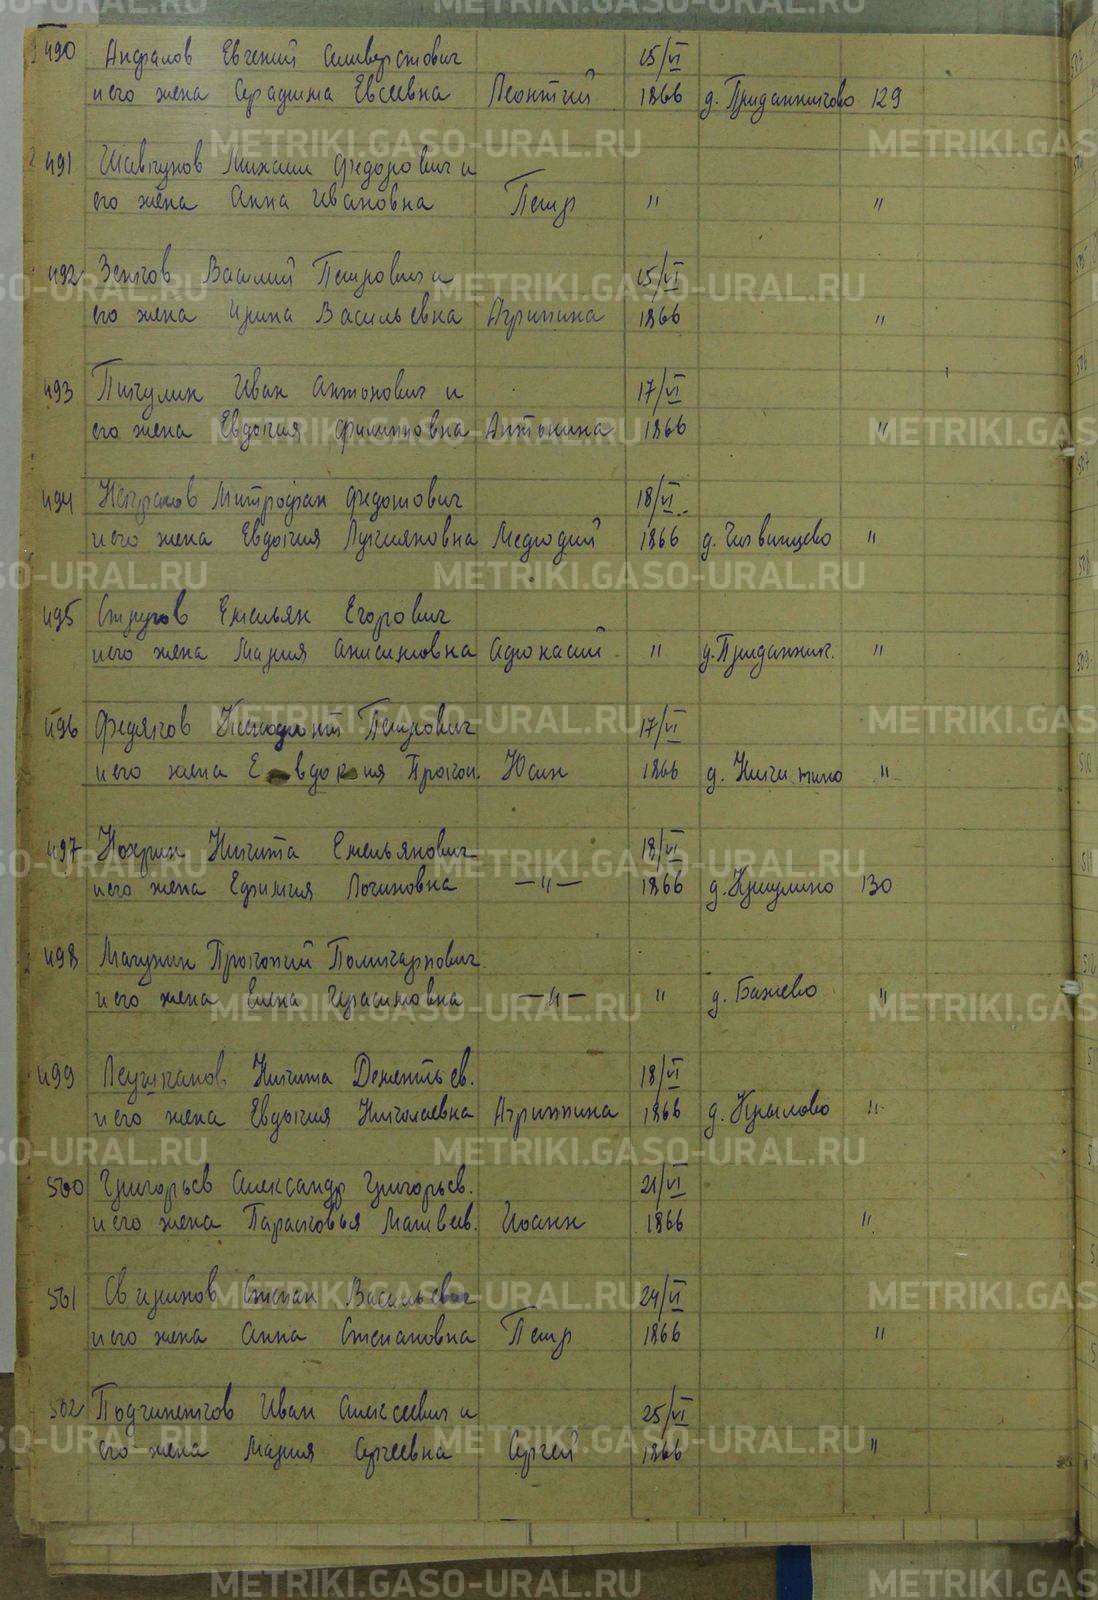 490 Анфалов Евгений Силиверстович 15/VI
и его жена Серафима Евсеевна Леонтий 1866 д. Приданниково 129
491 Шавкунов Михаил Федорович и
его жена Анна Ивановна Петр " "
492 Зенков Василий Петрович и 15/VI
его жена Ирина Васильевна Агрипина 1866 "
493 Пикулин Иван Антонович и 17/VI
его жена Евдокия Филиповна Антонина 1866 "
494 Митрофан Федотович 18/VI
и его жена Евдокия Лукияновна Мефодий 1866 д. Чигвинцево "
495 Стругов Емельян Егорович
и его жена Мария Анисимовна Афонасий " д. Приданник. "
496 Федяков Петрович 17/VI
и его жена Евдокия Прокоп. Юлин 1866 д. Никитино "
497 Кокрин Никита Емельянович 18/VI
и его жена Ефимия Логиновна —"— 1866 д. Криулино 130
498 Макукин Прокопий Поликарпович
и его жена Елена Герасимовна —"— " д. Бажево "
499 Никита Дементьев. 18/VI
и его жена Евдокия Николаевна Агриппина 1866 д. Крылово "
500 Григорьев Александр Григорьев. 21/VI
и его жена Парасковья Матвеев. Иоанн 1866 "
501 Степан Васильевич 24/VI
и его жена Анна Степановна Петр 1866 "
502 Подкиненков Иван Алексеевич и 25/VI
его жена Мария Сергеевна Сергей 1866 "
METRIKI.GASO-URAL.RU